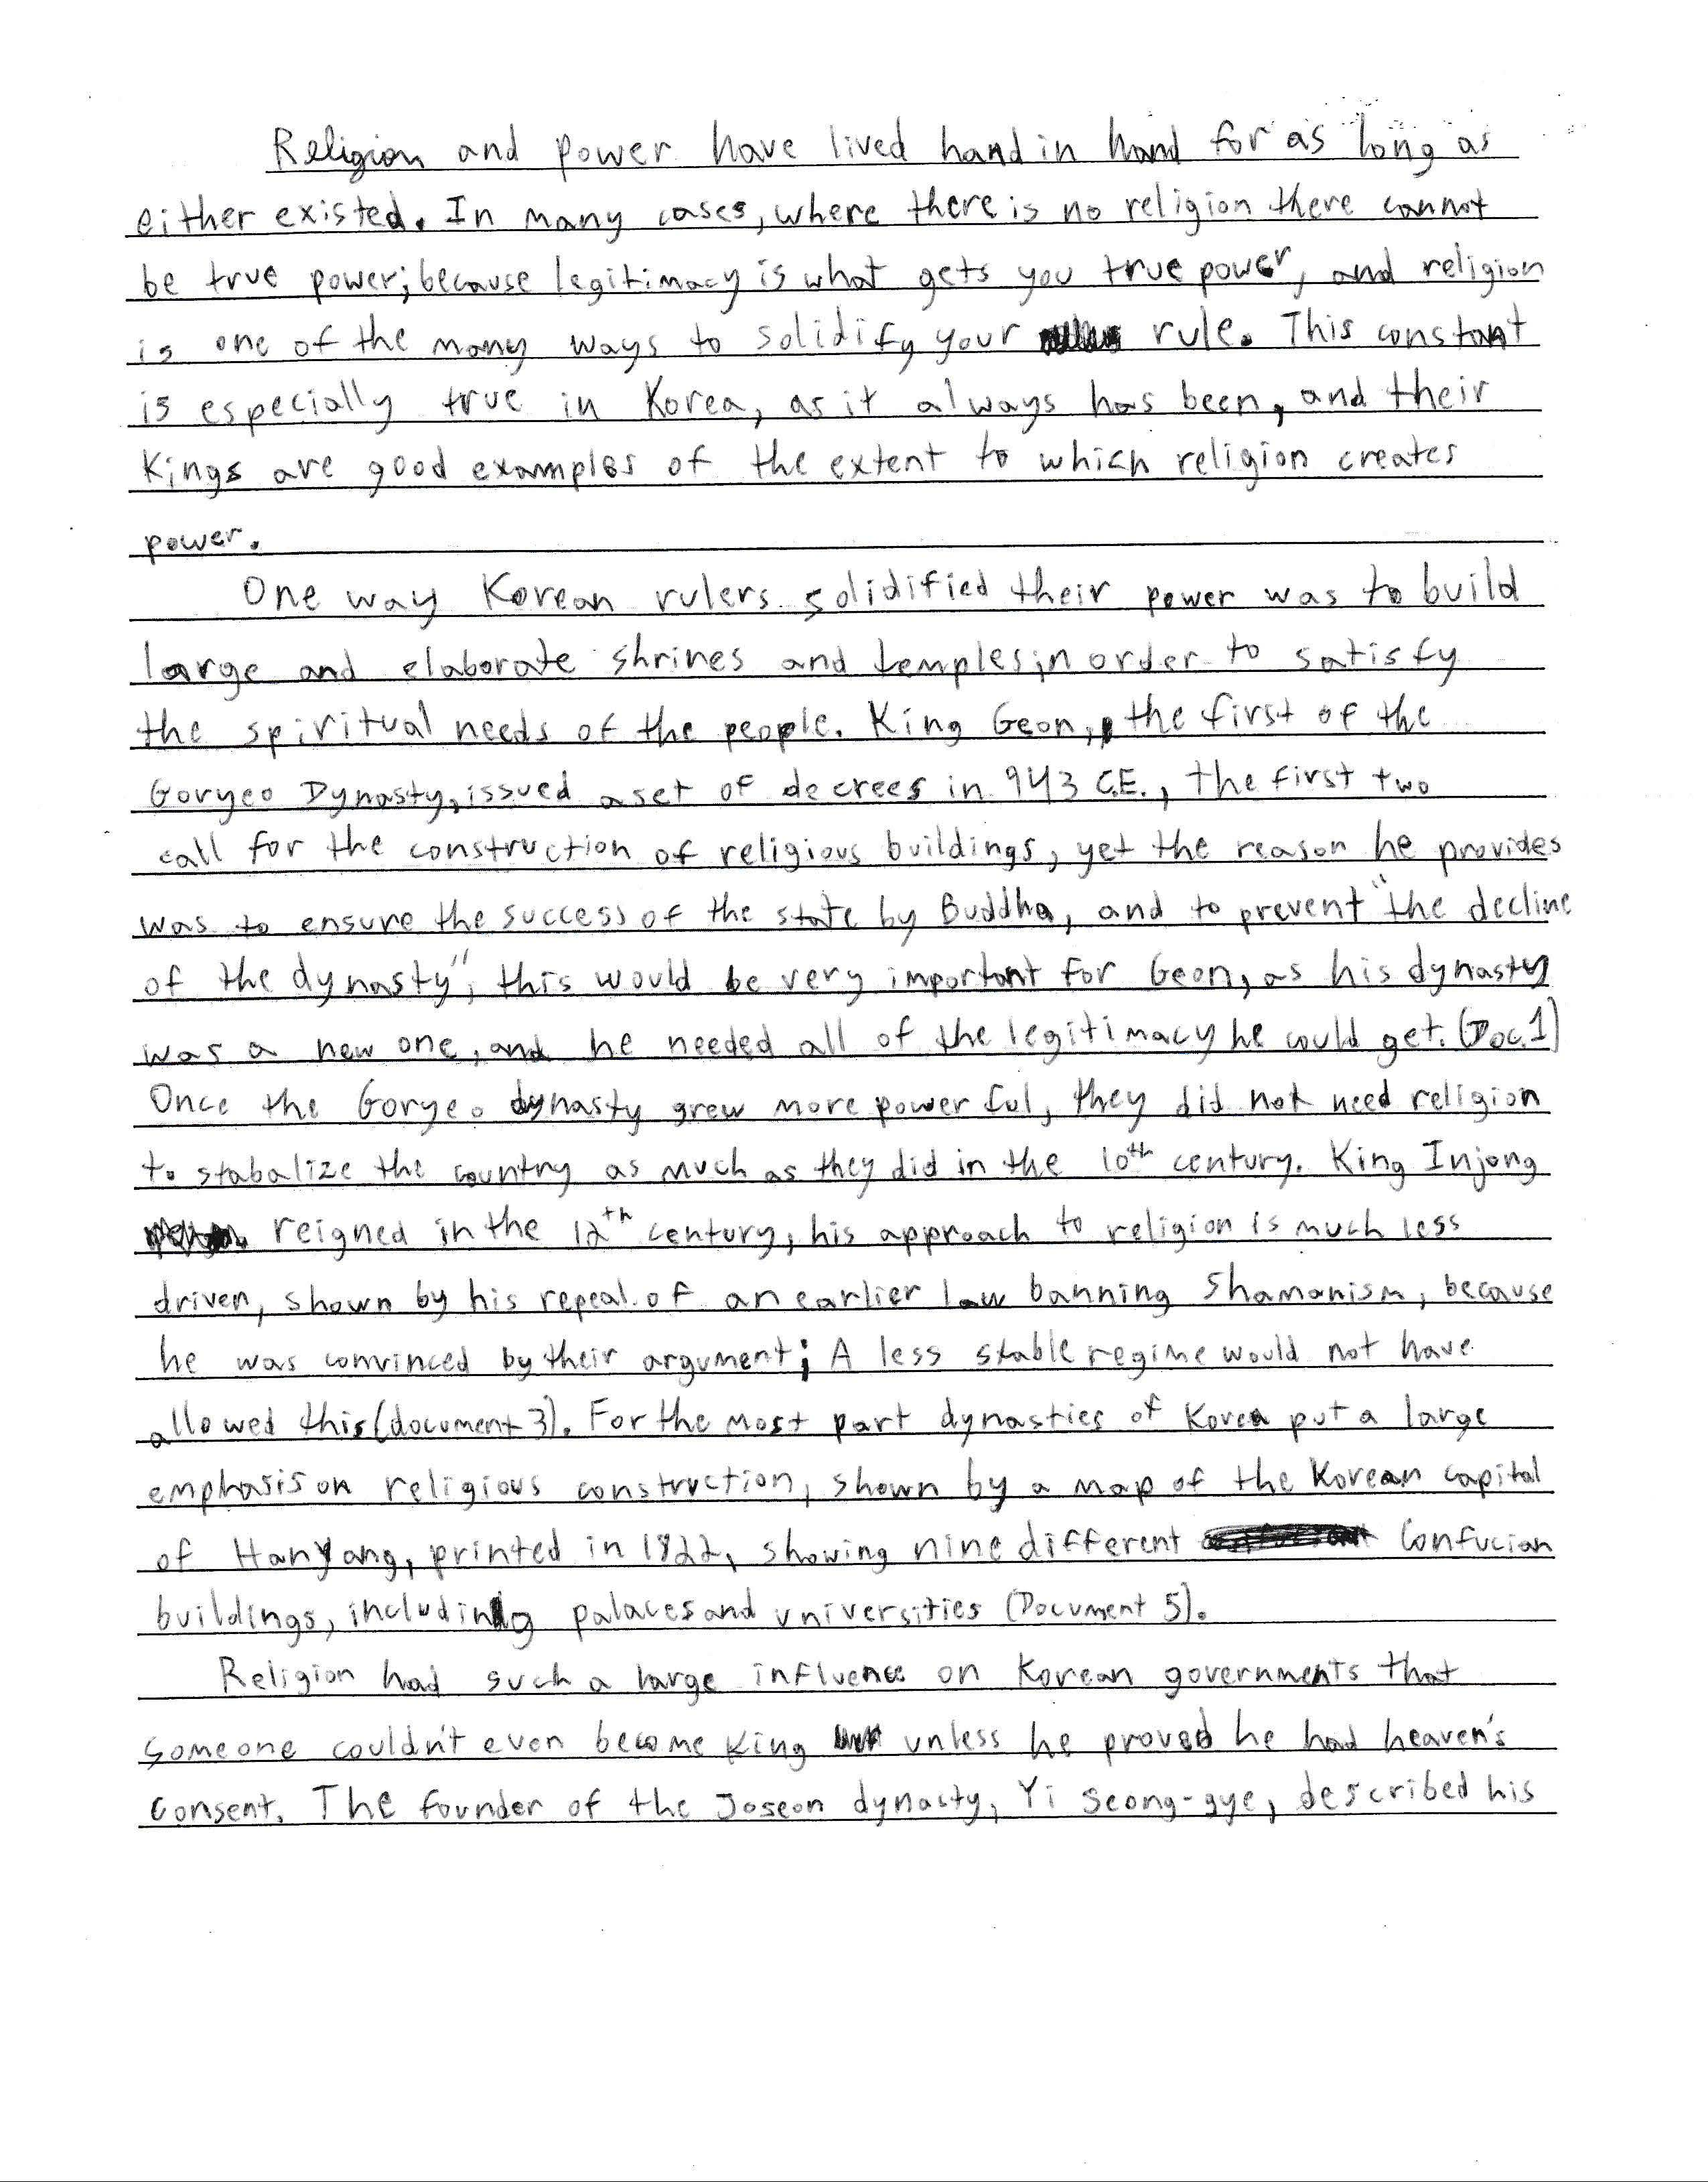 Religion and power have lived hand in hand for as long as
either existed. In many cases, where there is no religion there cannot
be true power; because legitimacy is what gets you true power, and religion
is one of the many ways to solidify your rule. This constant
is especially true in Korea, as it always has been, and their
Kings are good examples of the extent to which religion creates
power.
One way Korean rulers solidified their power was to build
large and elaborate shrines and temples in order to satisfy
the spiritual needs of the people. King Geon, the first of the
Goryeo Dynasty, issued a set of decrees in 943 C.E., the first two
call for the construction of religious buildings, yet the reason he provides
was to ensure the success of the state by Buddha, and to prevent "the decline
of the dynasty", this would be very important for Geon, as his dynasty
was a new one, and he needed all of the legitimacy he could get. (Doc. 1)
Once the Goryeo dynasty grew more powerful, they did not need religion
to stabalize the country as much as they did in the 10th century. King Injong
reigned in the 12th century, his approach to religion is much less
driven, shown by his repeal of an earlier law banning Shamanism, because
he was convinced by their argument; A less stable regime would not have
allowed this (document 3). For the most part dynasties of Korea put a large
emphasis on religious construction, shown by a map of the Korean capital
of Hanyang, printed in 1822, showing nine different Confucian
buildings, including palaces and universities (Document 5).
Religion had such a large influence on Korean governments that
someone couldn't even become King unless he proved he had heaven's
consent. The founder of the Joseon dynasty, Yi Seong-gye, described his